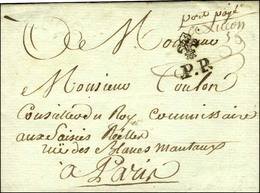 A Monsieur
port payé
P.P.
Monsieur Toulon
Conseiller du Roy Commissaire
aux Saisies Réelles
rue des Blancs manteaux
à Paris